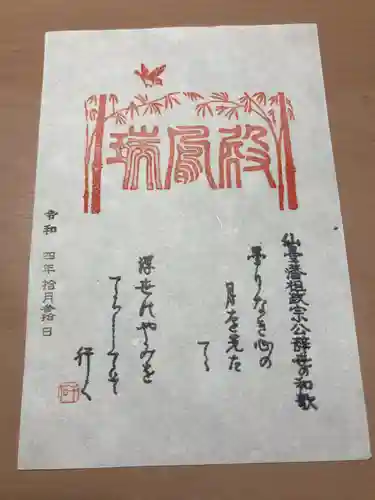 瑞鳳殿
仙臺藩祖政宗公辞世の和歌
曇りなき心の
月を先た
てゝ
浮世のやみを
てらしてぞ
行く
令和 四年 拾月 参拾 日